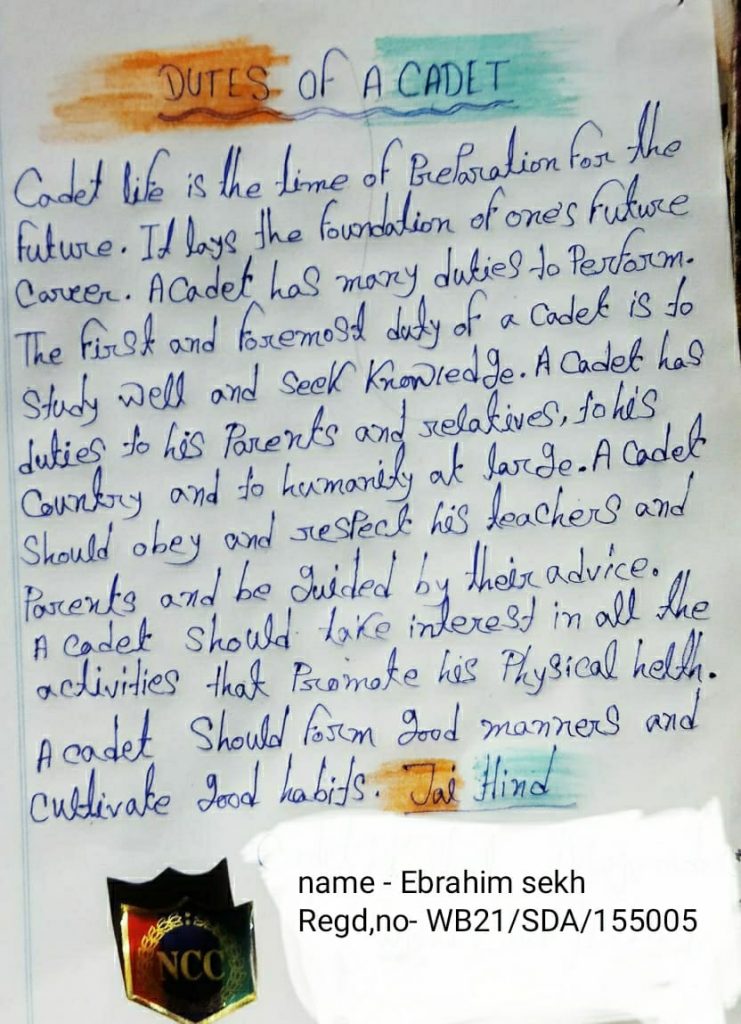 DUTES OF A CADET
Cadet life is the time of Preparation for the
future. It lays the foundation of one's future
Career. A Cadet has many duties to Perform.
The first and foremost duty of a Cadet is to
Study well and seek Knowledge. A Cadet has
duties to his Parents and relatives, to his
Country and to humanity at large. A Cadet
Should obey and respect his teachers and
Parents and be guided by their advice.
A Cadet Should take interest in all the
activities that Promote his Physical helth.
A cadet Should form good manners and
Cultivate good habits. Jai Hind
name - Ebrahim sekh
Regd,no- WB21/SDA/155005
NCC